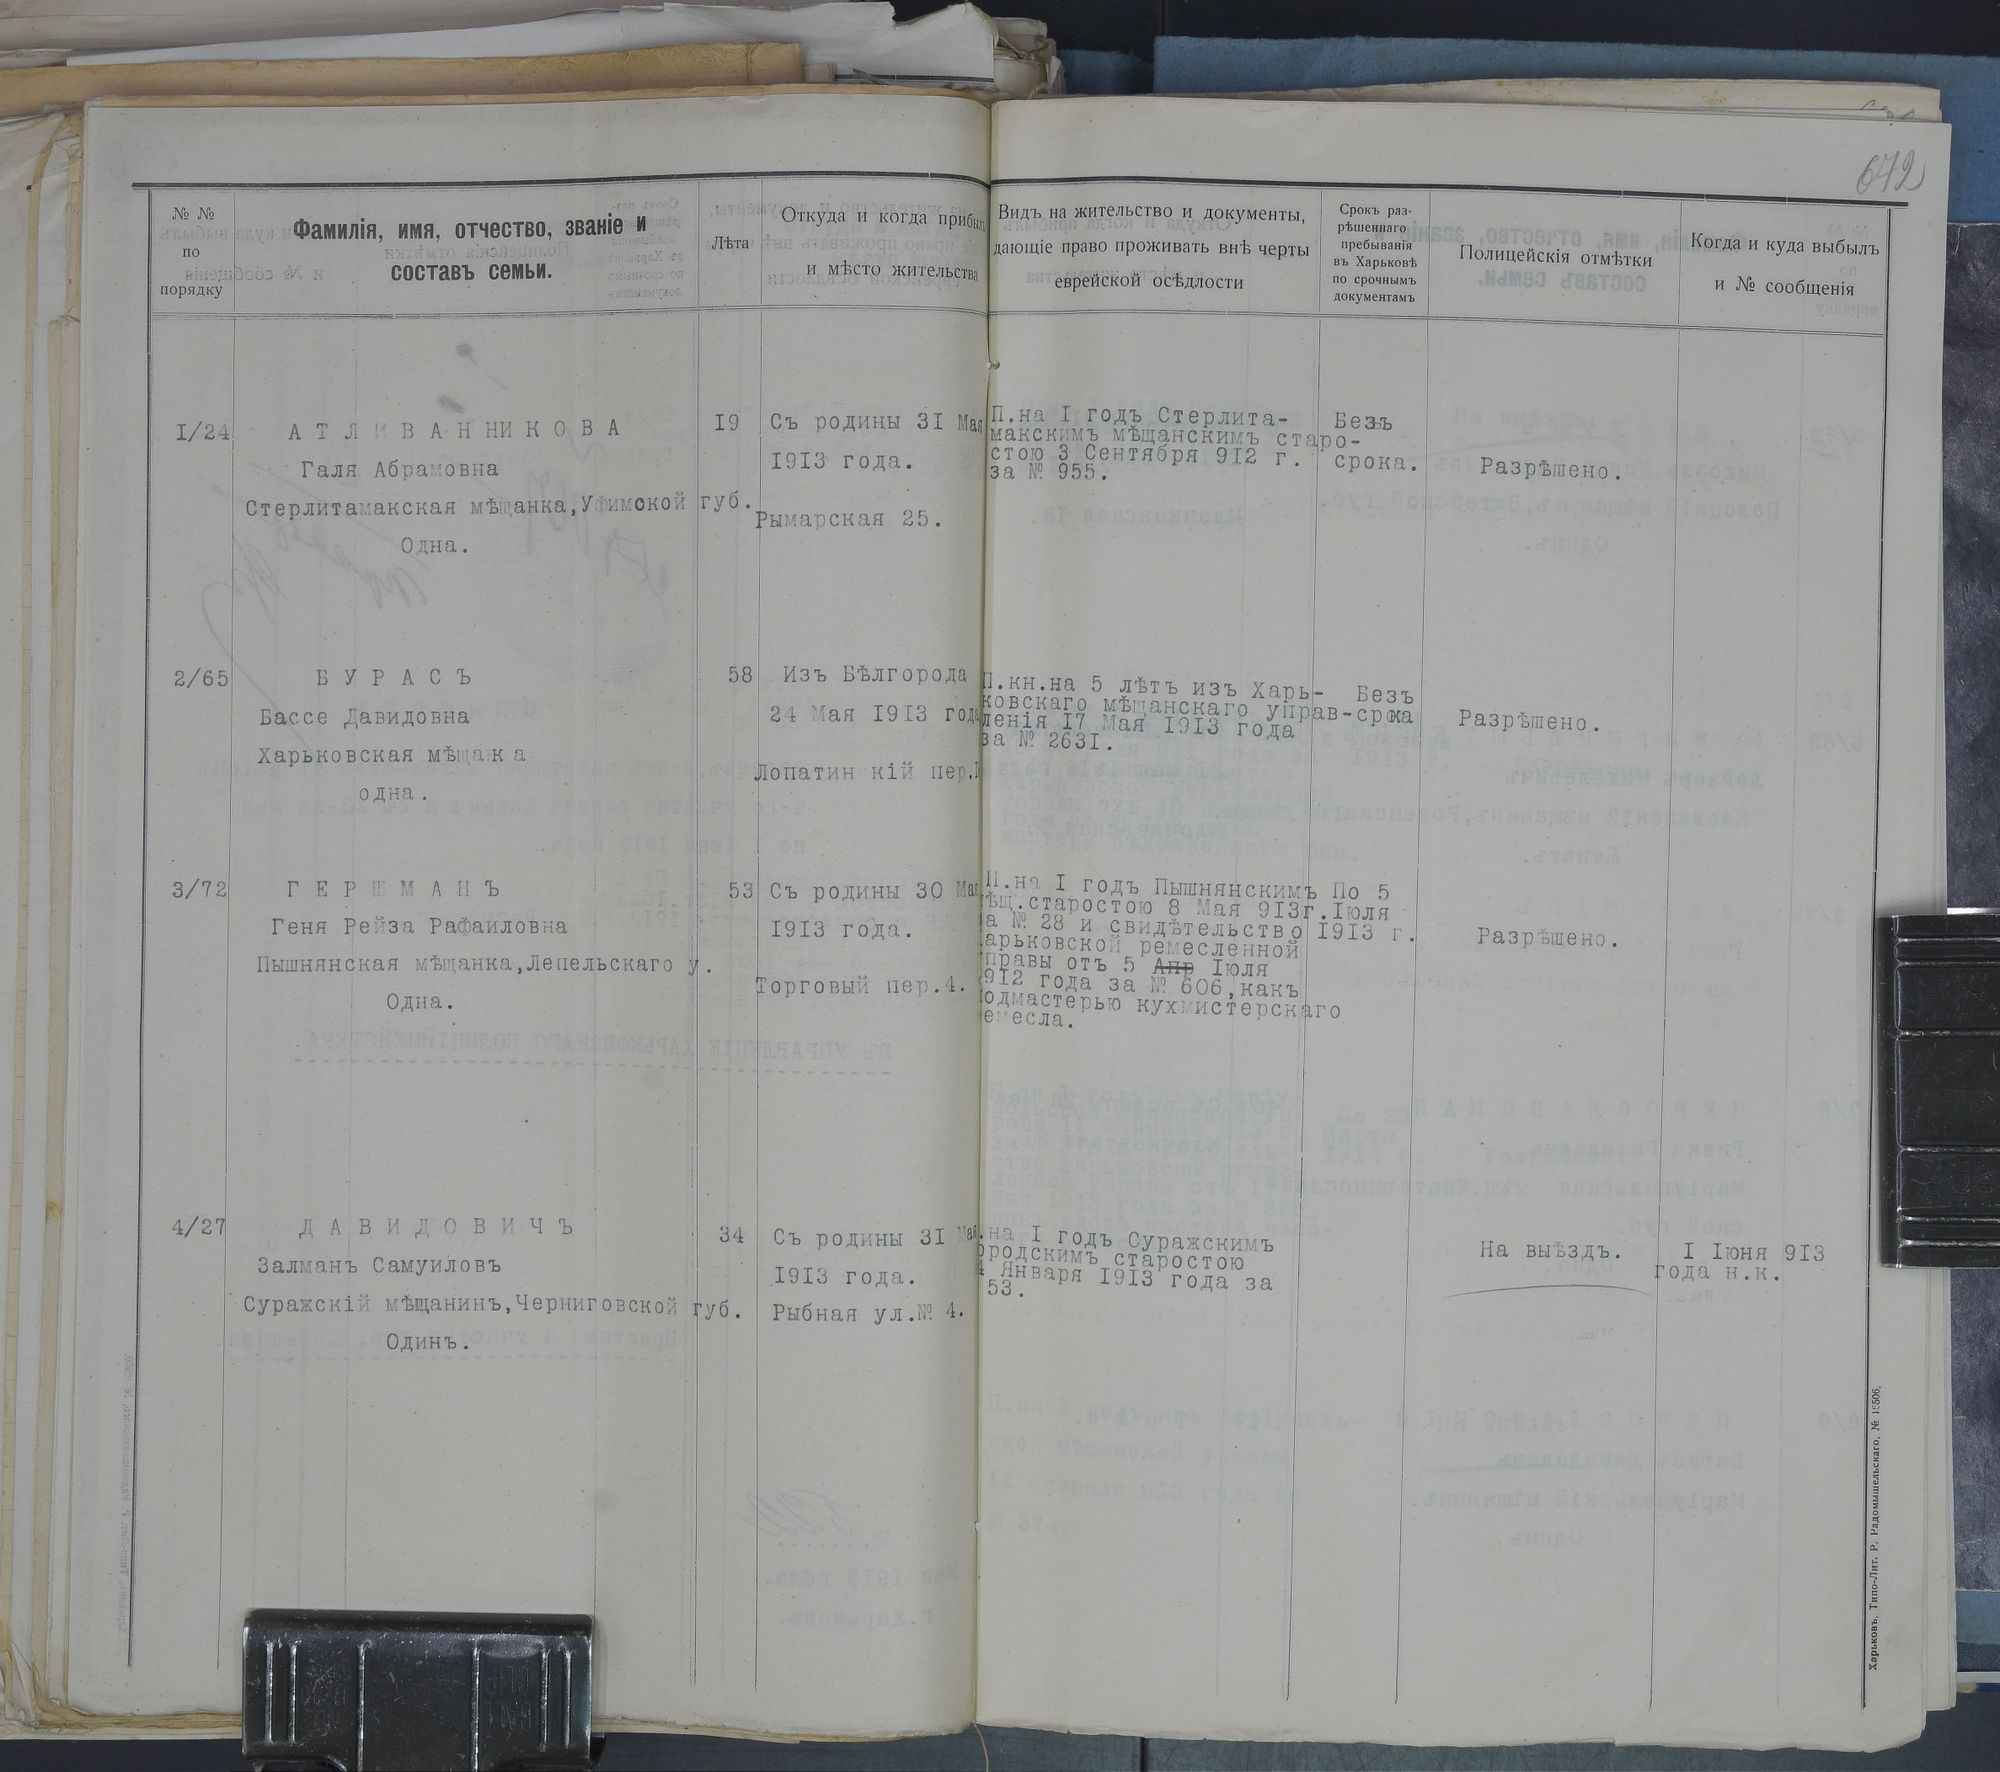 672
№ №
по
порядку
Фамилія, имя, отчество, званіе и
составъ семьи.
Лѣта
Откуда и когда прибылъ
и мѣсто жительства
Видъ на жительство и документы,
дающіе право проживать внѣ черты
еврейской осѣдлости
Срокъ раз-
рѣшеннаго
пребыванія
въ Харьковѣ
по срочнымъ
документамъ
Полицейскія отмѣтки
Когда и куда выбылъ
и № сообщенія
I/24
АТЛИВАННИКОВА
Галя Абрамовна
Стерлитамакская мѣщанка,Уфимской губ.
Одна.
I9
Съ родины 3I Мая
I9I3 года.
Рымарская 25.
П.на I годъ Стерлита-
макскимъ мѣщанскимъ старо-
стою 3 Сентября 9I2 г.
за № 955.
Безъ
срока.
Разрѣшено.
2/65
БУРАСЪ
Бассе Давидовна
Харьковская мѣщанка
одна.
58
Изъ Бѣлгорода
24 Мая I9I3 года
Лопатин кій пер.
П.кн.на 5 лѣтъ изъ Харь-
ковскаго мѣщанскаго управ-
ленія I7 Мая I9I3 года
за № 263I.
Безъ
срока
Разрѣшено.
3/72
ГЕРШМАНЪ
Геня Рейза Рафаиловна
Пышнянская мѣщанка,Лепельскаго у.
Одна.
53
Съ родины 30 Мая
I9I3 года.
Торговый пер.4.
П.на I годъ Пышнянскимъ
ѣщ.старостою 8 Мая 9I3г.
а № 28 и свидѣтельство
арьковской ремесленной
правы отъ 5 Апр Іюля
9I2 года за № 606,какъ
одмастерью кухмистерскаго
емесла.
По 5
Іюля
I9I3 г.
Разрѣшено.
4/27
ДАВИДОВИЧЪ
Залманъ Самуиловъ
Суражскій мѣщанинъ,Черниговской губ.
Одинъ.
34
Съ родины 3I Мая
I9I3 года.
Рыбная ул.№ 4.
.на I годъ Суражскимъ
ородскимъ старостою
4 Января I9I3 года за
53.
На выѣздъ.
I Іюня 9I3
года н.к.
Харьковъ, Типо-Лит. Р. Радомышельскаго, № 16506.